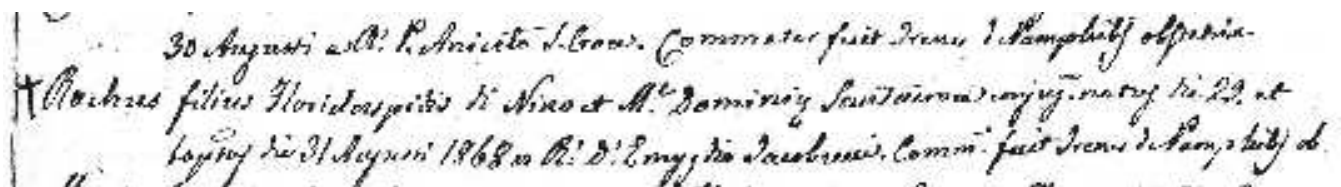 30 Augusti a R. P. Aniceto S. Croce. Commater fuit Irene d Pamphilis obstetrix
† Rochus filius Floridaspidis di Nino et M.ª Dominicæ conjug. natus die 29. et
die 31 Augusti 1868 a R. D. Emygdio Comm. fuit Irene de Pamphilis ob